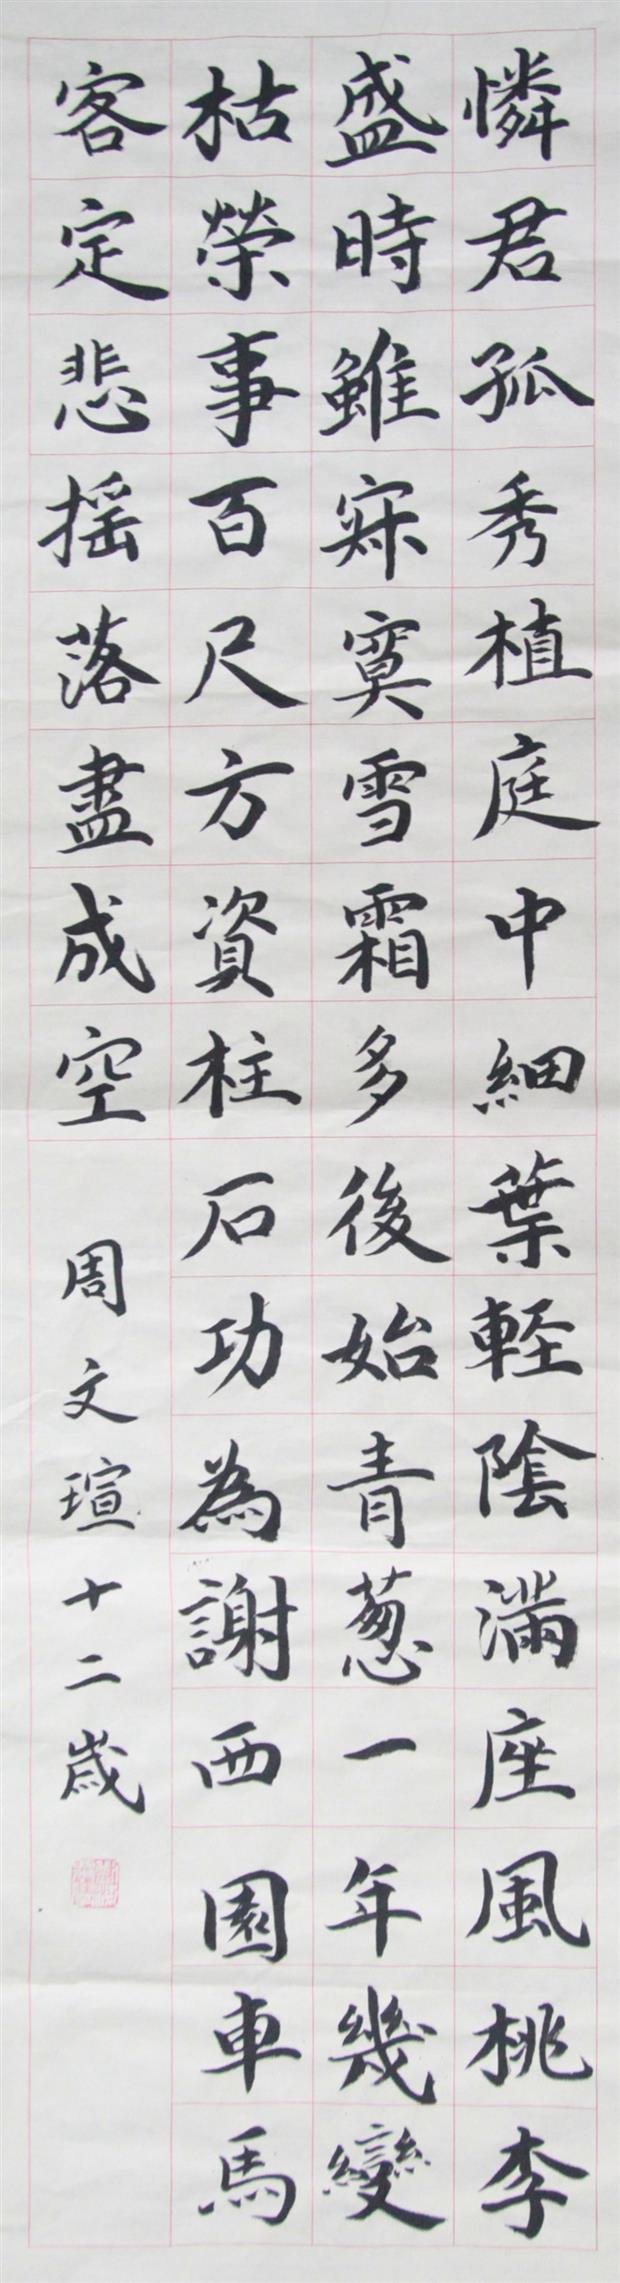 憐君孤秀植庭中細葉軽陰滿座風桃李
盛時雖寂寞雪霜多後始青葱一年幾變
枯榮事百尺方資柱石功為謝西園車馬
客定悲揺落盡成空
周文瑄十二歲